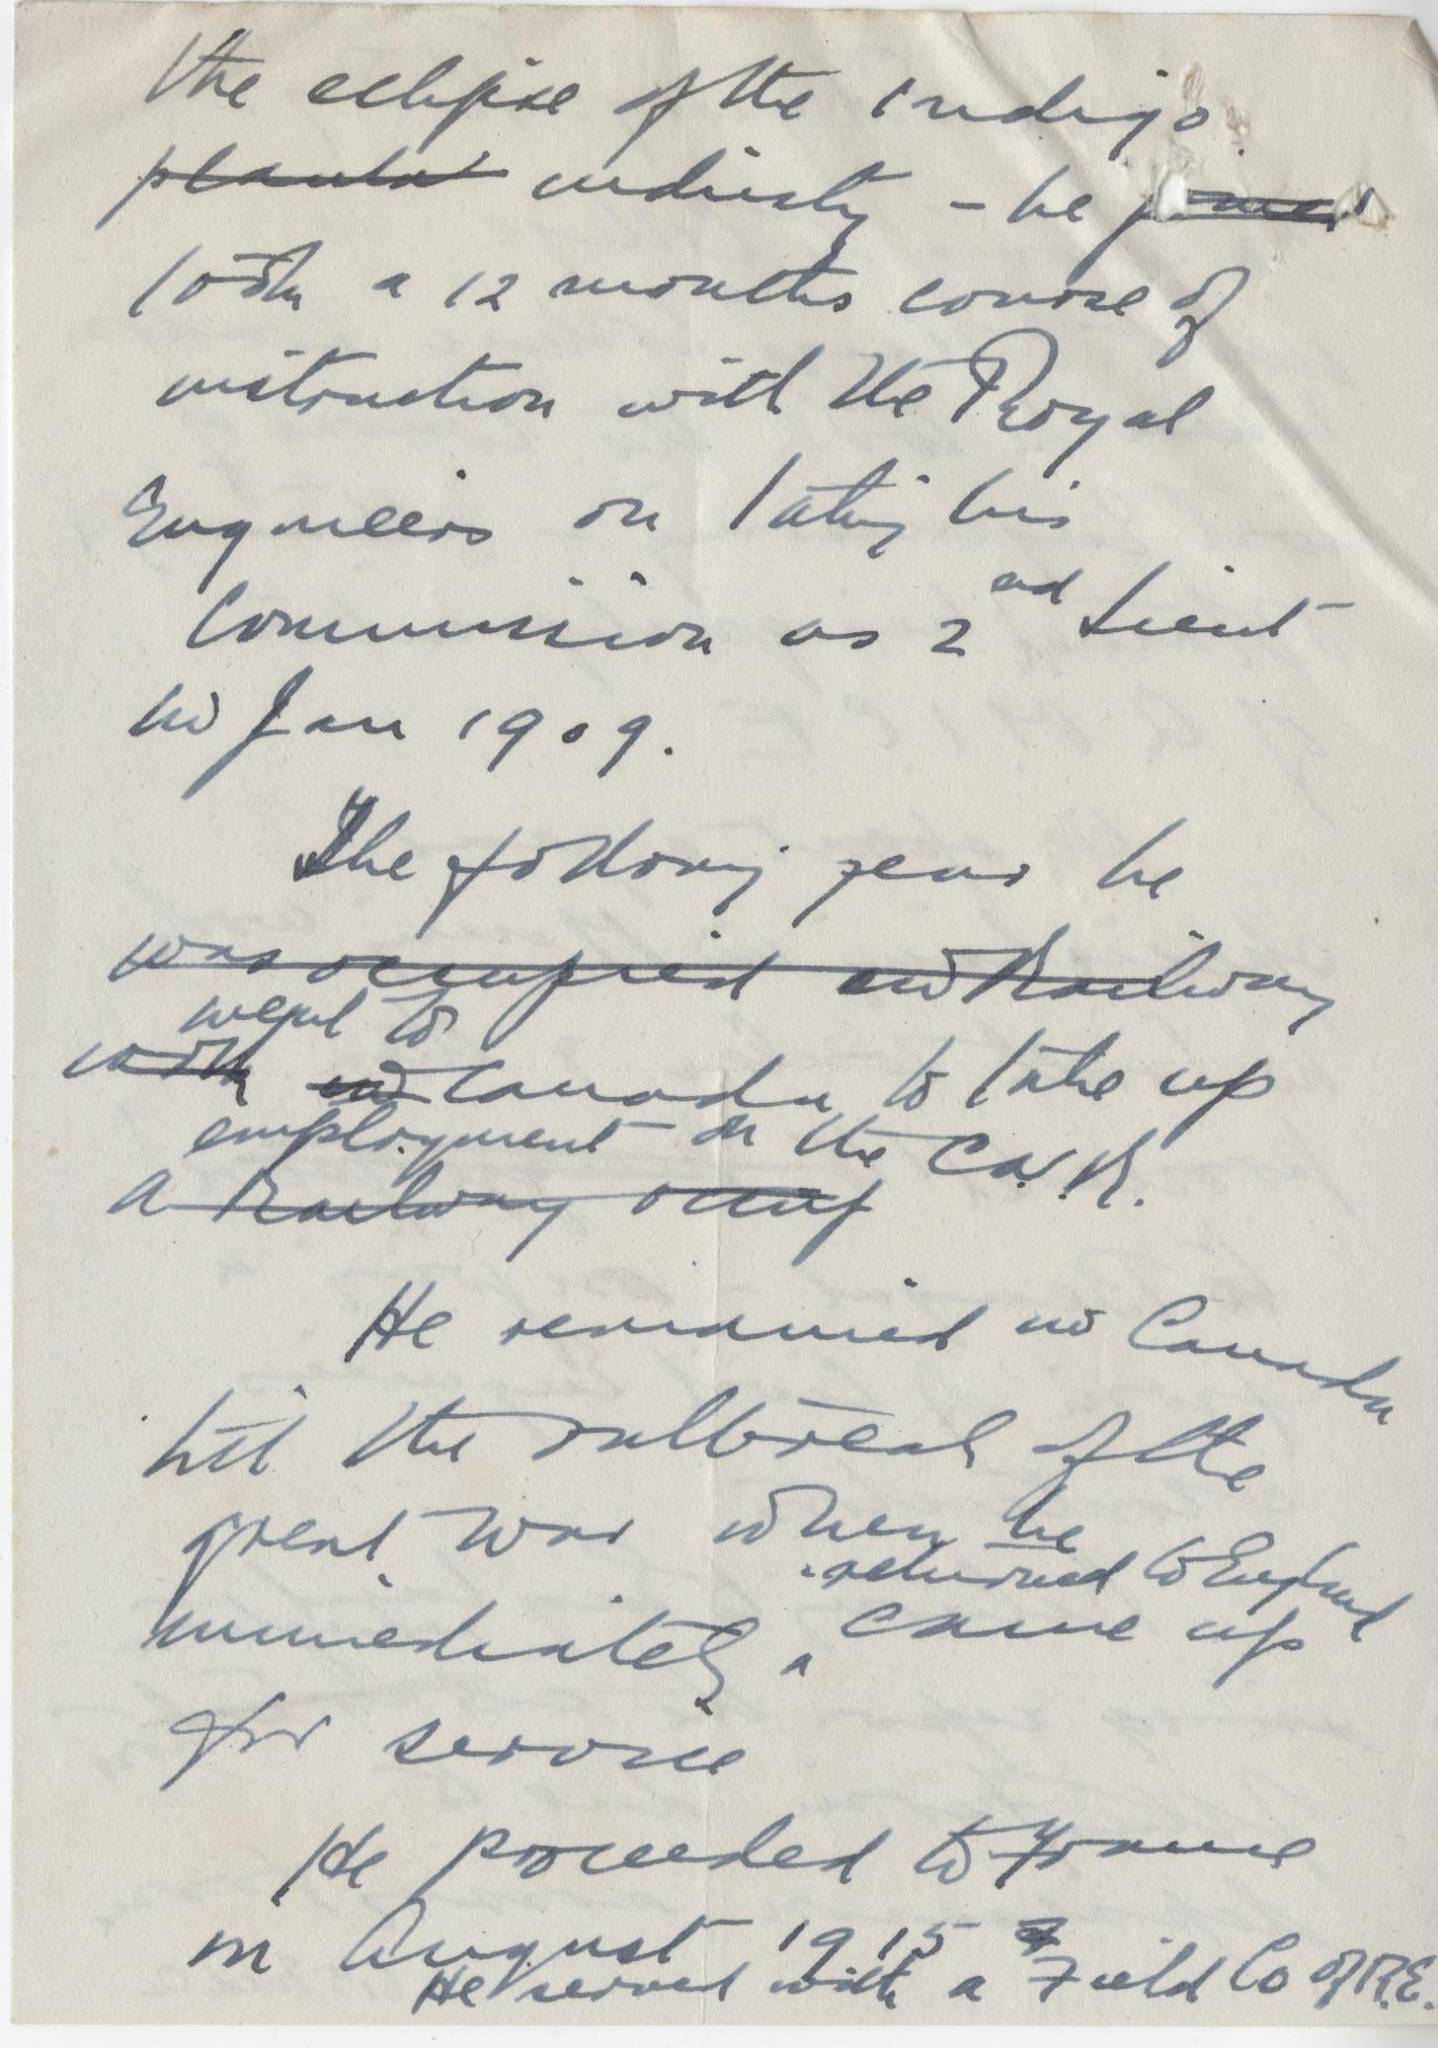 the eclipse of the indigo
planter industry - he joined
took a 12 months course of
instruction with the Royal
Engineers on taking his
Commission as 2nd Lieut
in Jan 1909.
The following year he
was occupied in Railway
went to
work in Canada to take up
employment on the C.N.R.
a Railway occup
He remained in Canada
till the outbreak of the
great war when he
returned to England
immediately & came up
for service
He proceeded to France
in August 1915
He served with a Field Co of R.E.